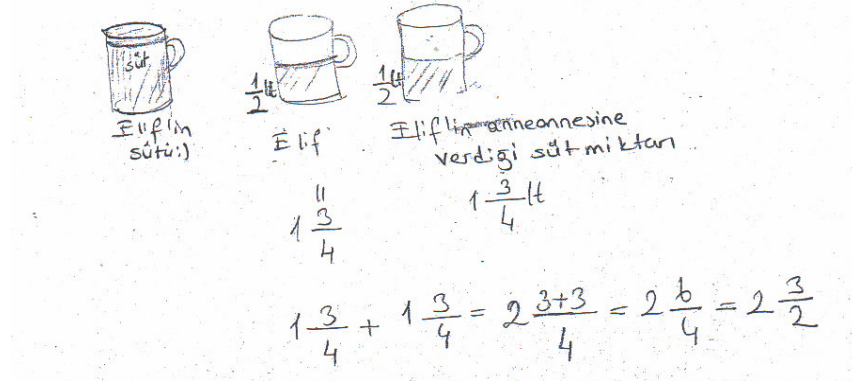 süt
1/2 lt
1/2 lt
Elif'in
sütü:)
Elif
Elif'in anneannesine
verdiği süt miktarı
"
1 3/4
1 3/4 lt
1 3/4 + 1 3/4 = 2 3+3/4 = 2 6/4 = 2 3/2